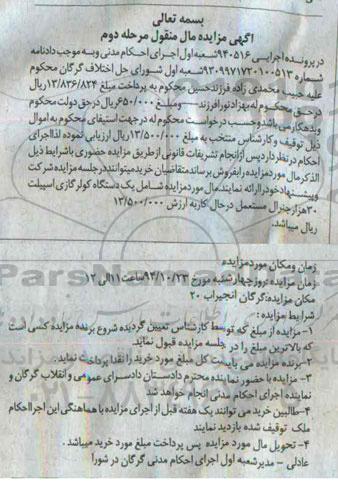 بسمه تعالی
آگهی مزایده مال منقول مرحله دوم
در پرونده اجرایی ۹۴۰۵۱۶ شعبه اول اجرای احکام مدنی وبه موجب دادنامه
شماره ۹۲۰۹۹۷۱۷۲۰۱۰۰۵۱۳ شعبه اول شورای حل اختلاف گرگان محکوم
علیه حبیب محمدی زاده فرزندحسین محکوم به پرداخت مبلغ ۱۳/۸۳۶/۸۲۴ ریال
درحق محکوم له بهزادتورافرزند --- ومبلغ ۶۵۰/۰۰۰ ریال درحق دولت محکوم
وبدهکارمی باشدوحسب درخواست محکوم له درجهت استیفای محکوم به اموال
ذیل توقیف وکارشناس منتخب به مبلغ ۱۳/۵۰۰/۰۰۰ ریال ارزیابی نموده لذااجرای
احکام درنظرداردپس ازانجام تشریفات قانونی ازطریق مزایده حضوری باشرایط ذیل
الذکرمال موردمزایده رابفروش برساندمتقاضیان خریدمیتواننددرجلسه مزایده شرکت
وپیشنهادخودراارائه نمایندمال موردمزایده شامل یک دستگاه کولرگازی اسپیلت
۳۰هزارجنرال مستعمل درحال کاربه ارزش ۱۳/۵۰۰/۰۰۰
ریال میباشد.
زمان ومکان موردمزایده
زمان مزایده :روزچهارشنبه مورخ ۹۴/۱۰/۲۳ ساعت ۱۱الی ۱۲
مکان مزایده:گرگان انجیراب ۲۰
شرایط مزایده :
۱-مزایده از مبلغ که توسط کارشناس تعیین گردیده شروع برنده مزایده کسی است
که بالاترین مبلغ را در جلسه مزایده قبول نماید.
۲-برنده مزایده می بایست کل مبلغ مورد خرید را نقدا پرداخت نماید.
۳- مزایده با حضور نماینده محترم دادستان دادسرای عمومی وانقلاب گرگان و
نماینده اجرای احکام مدنی انجام خواهد شد
۴-طالبین خرید می توانند یک هفته قبل از اجرای مزایده با هماهنگی این اجرااحکام
ملک توقیف شده بازدید نمایند
۴- تحویل مال مورد مزایده پس پرداخت مبلغ مورد خرید میباشد.
عادلی - مدیرشعبه اول اجرای احکام مدنی گرگان در شورا